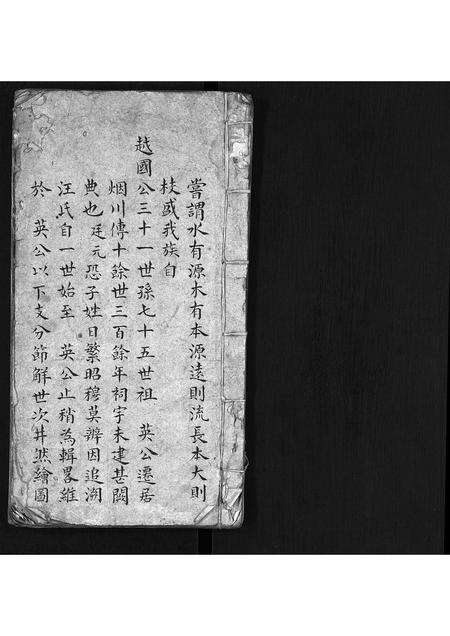 嘗謂水有源木有本源遠則流長本大則
枝盛我族自
越國公三十一世孫七十五世祖 英公遷居
烟川傳十餘世三百餘年祠宇未建甚闕
典也廷元恐子姓日繁昭穆莫辨因追溯
汪氏自一世始至 英公止稍為輯畧維
於 英公以下支分節解世次井然繪圖